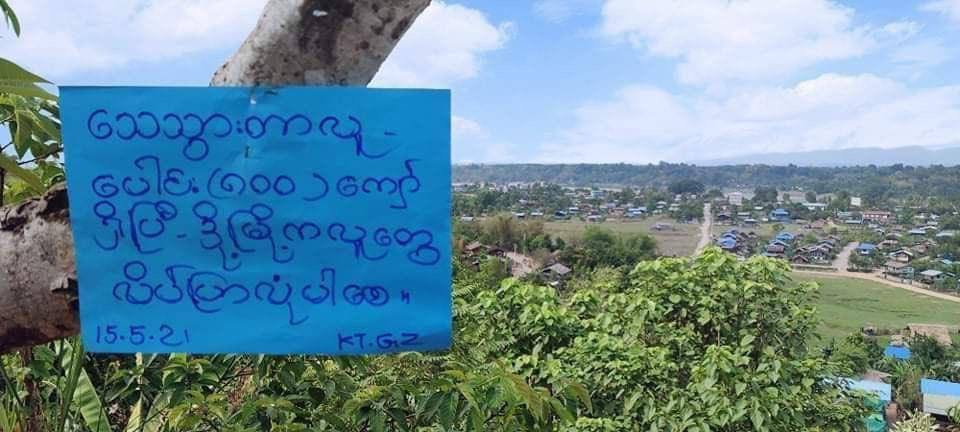 သေသွားတာလူ -
ပေါင်း (၈၀၀) ကျော်
ရှိပြီ - ဒို့မြို့ကလူတွေ
လိပ်ပြာလုံပါစေ။
15.5.21 KT.GZ